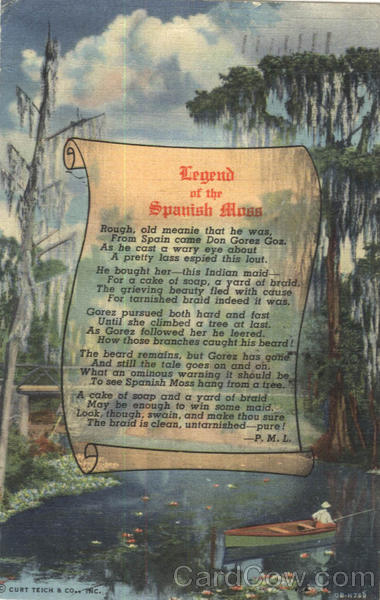 Legend
of the
Spanish Moss
Rough, old meanie that he was,
From Spain came Don Gorez Goz.
As he cast a wary eye about
A pretty lass espied this lout.
He bought her—this Indian maid—
For a cake of soap, a yard of braid.
The grieving beauty fled with cause
For tarnished braid indeed it was.
Gorez pursued both hard and fast
Until she climbed a tree at last.
As Gorez followed her he leered.
How those branches caught his beard!
The beard remains, but Gorez has gone
And still the tale goes on and on.
What an ominous warning it should be
To see Spanish Moss hang from a tree.
A cake of soap and a yard of braid
May be enough to win some maid.
Look, though, swain, and make thou sure
The braid is clean, untarnished—pure!
—P. M. L.
© CURT TEICH & CO., INC.
CardCow.com